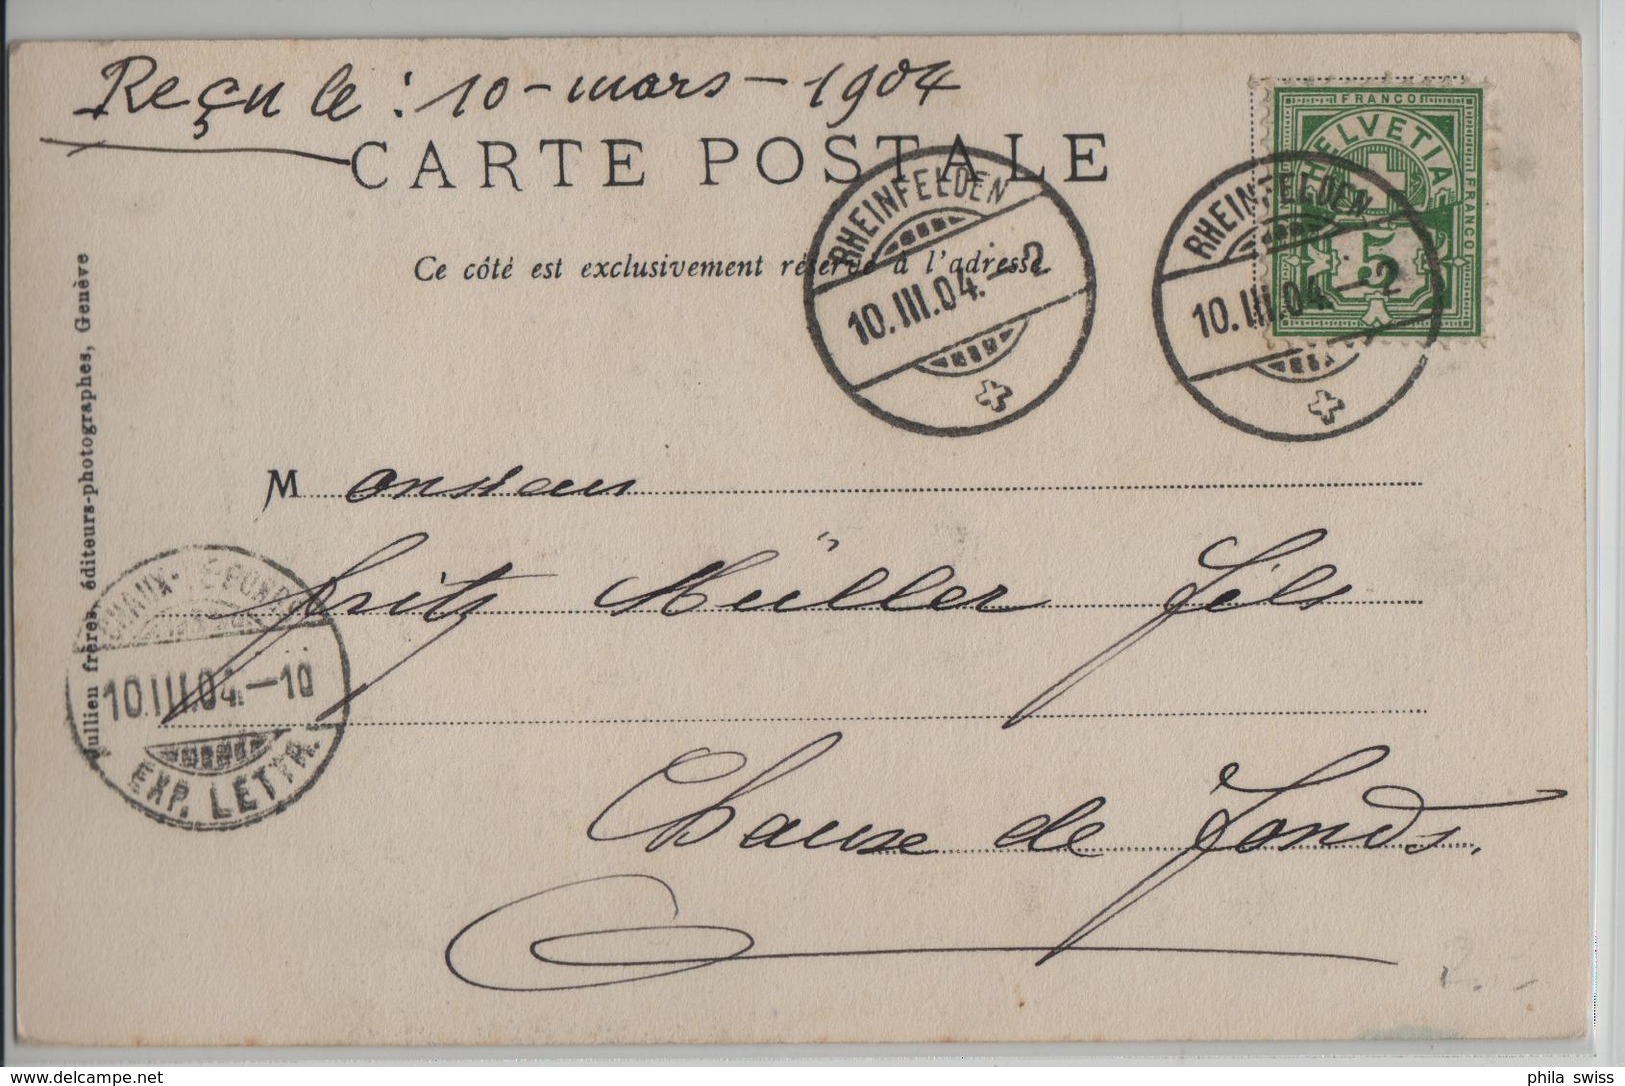 Reçu le : 10 - mars - 1904
CARTE POSTALE
Ce côté est exclusivement réservé à l'adresse.
FRANCO
HELVETIA
FRANCO
5
RHEINFELDEN
10.III.04.–2
RHEINFELDEN
10.III.04.–2
Jullien frères, éditeurs-photographes, Genève
Monsieur
Fritz Müller Fils
Chaux de Fonds.
CHAUX-DE-FONDS
10.III.04.–10
EXP. LETTR.
delcampe.net
phila_swiss